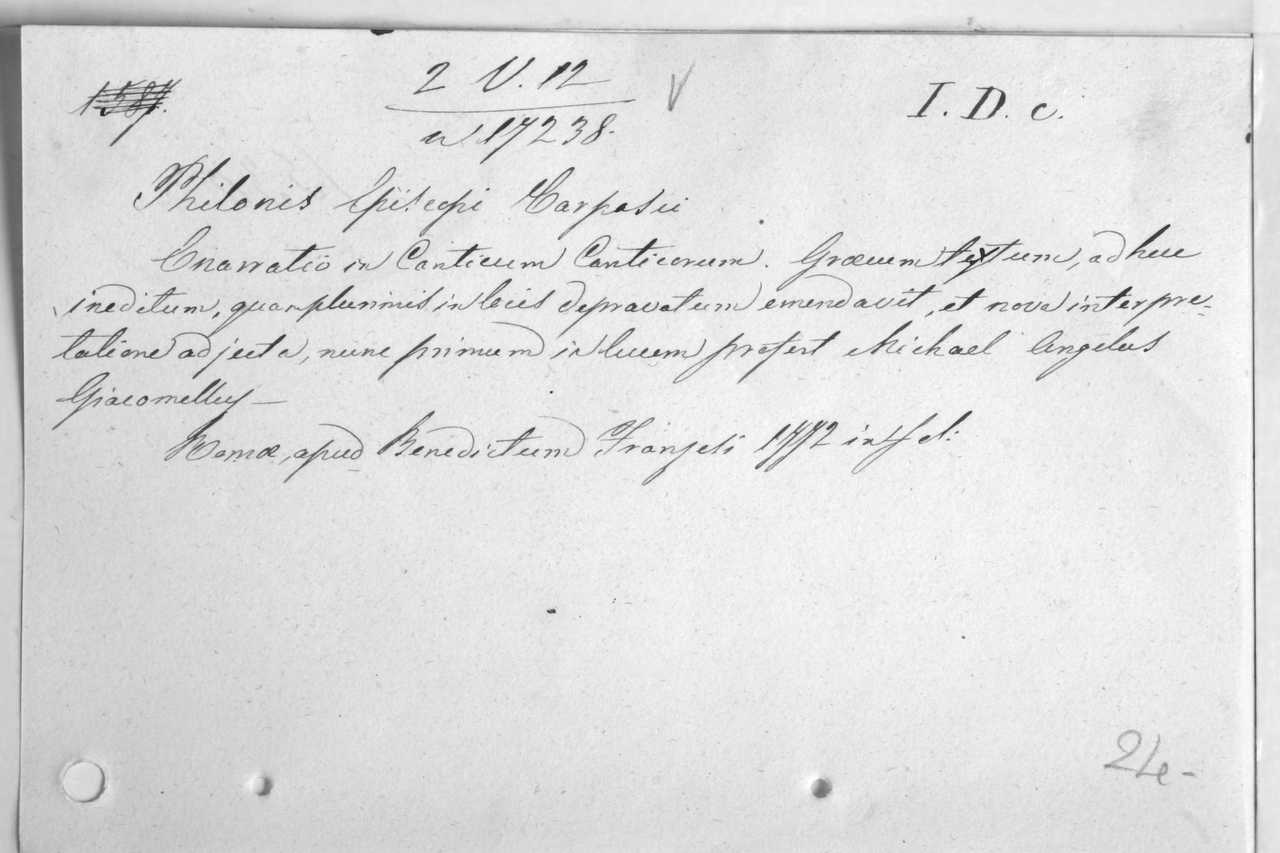 2 V. 12
I. D. c.
n 17238.
Philonis Episcopi Carpasii
Enarratio in Canticum Canticorum. Græcum textum, adhuc
ineditum, quamplurimis in locis depravatum emendavit, et nova interpre-
tatione adjecta, nunc primum in lucem profert Michael Angelus
Giacomellus —
Romæ, apud Benedictum Franzesi 1772 in fol:
24-